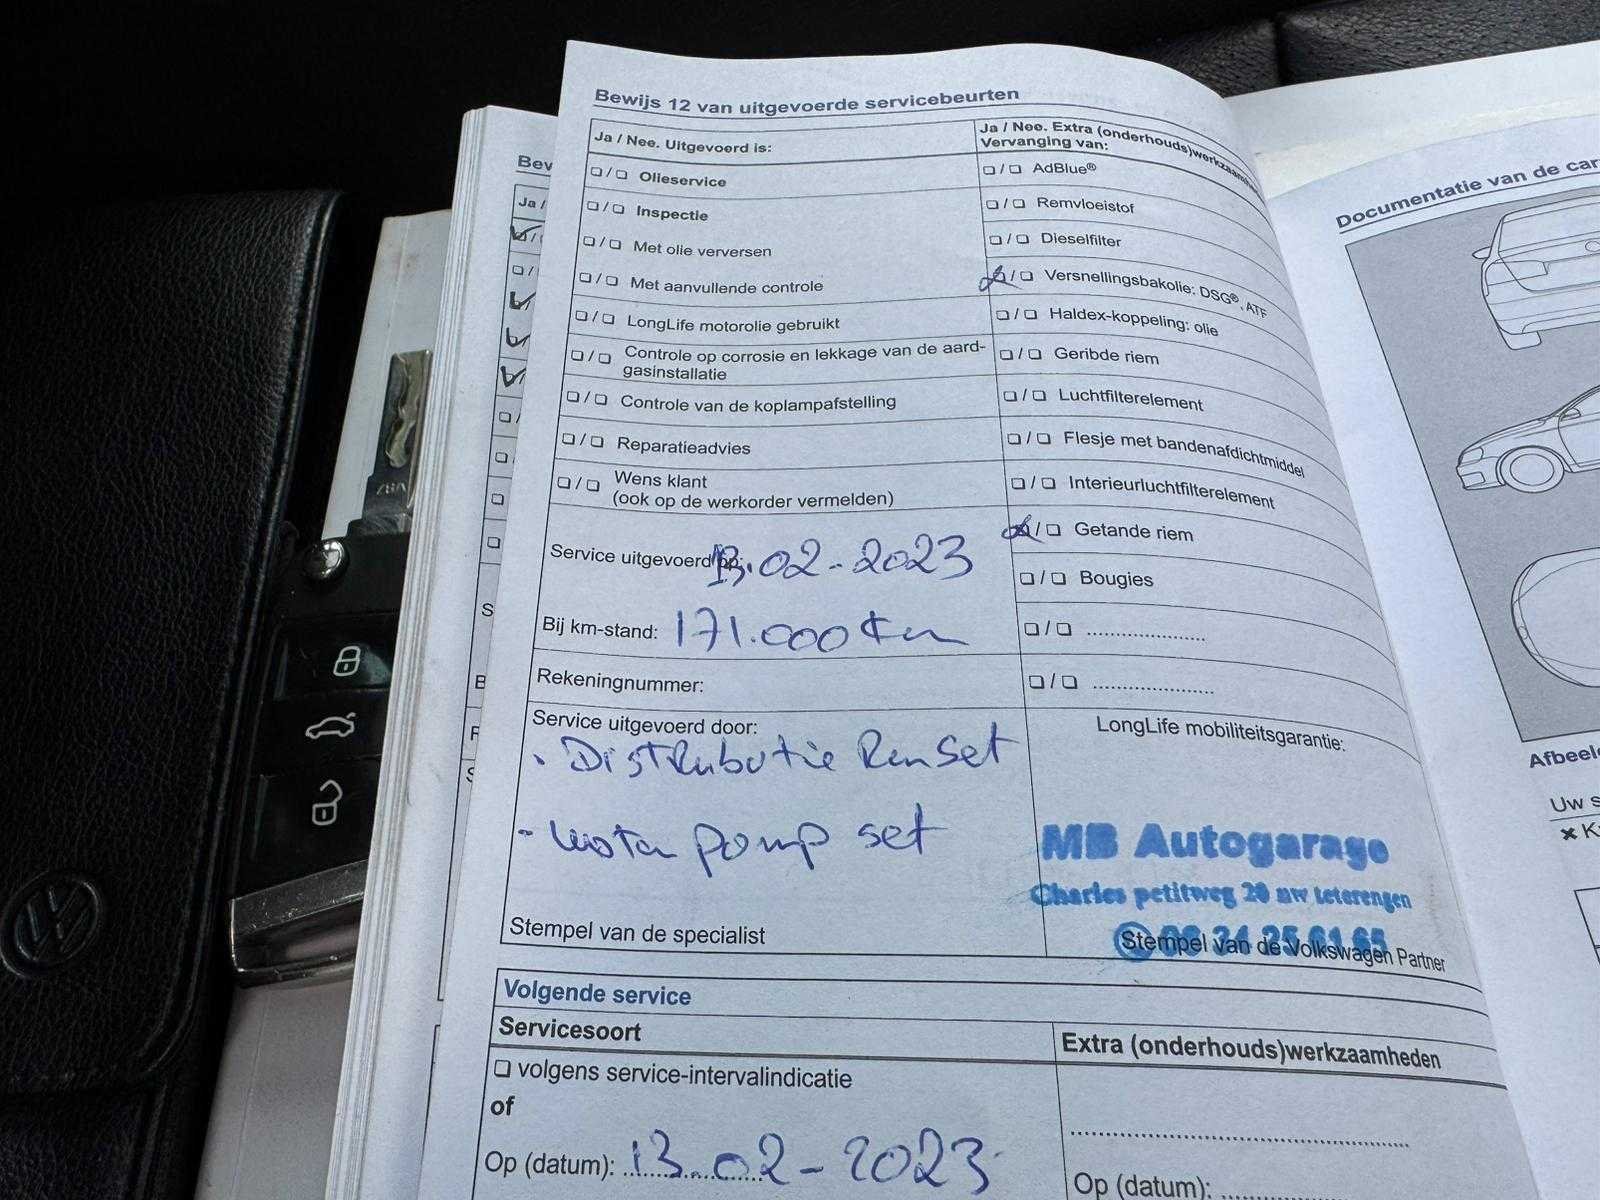 Bewijs 12 van uitgevoerde servicebeurten
Ja / Nee. Uitgevoerd is:
❑ / ❑ Olieservice
❑ / ❑ Inspectie
❑ / ❑ Met olie verversen
❑ / ❑ Met aanvullende controle
❑ / ❑ LongLife motorolie gebruikt
❑ / ❑ Controle op corrosie en lekkage van de aard-
gasinstallatie
❑ / ❑ Controle van de koplampafstelling
❑ / ❑ Reparatieadvies
❑ / ❑ Wens klant
(ook op de werkorder vermelden)
Service uitgevoerd op: 13.02-2023
Bij km-stand: 171.000 km
Rekeningnummer:
Service uitgevoerd door:
- Distributie Riemset
- water pomp set
Stempel van de specialist
Ja / Nee. Extra (onderhouds)werkzaamhe
Vervanging van:
❑ / ❑ AdBlue®
❑ / ❑ Remvloeistof
❑ / ❑ Dieselfilter
❑ / ❑ Versnellingsbakolie: DSG®, ATF
❑ / ❑ Haldex-koppeling: olie
❑ / ❑ Geribde riem
❑ / ❑ Luchtfilterelement
❑ / ❑ Flesje met bandenafdichtmiddel
❑ / ❑ Interieurluchtfilterelement
❑ / ❑ Getande riem
❑ / ❑ Bougies
❑ / ❑ ....................
❑ / ❑ ....................
LongLife mobiliteitsgarantie:
MB Autogarage
Charles petitweg 20 uw teterengen
06 34 25 61 65
Stempel van de Volkswagen Partner
Volgende service
Servicesoort
❑ volgens service-intervalindicatie
of
Op (datum): 13.02-2023
Extra (onderhouds)werkzaamheden
Op (datum):
Bew
Ja /
Documentatie van de car
Afbeel
Uw s